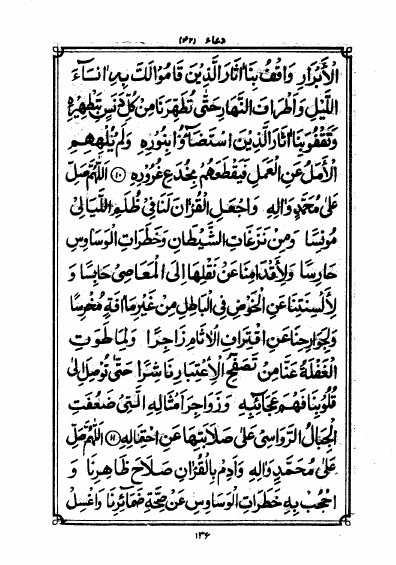 دعاء (۴۲)
الْأَبْرَارِ وَاقْفُ بِنَا آثَارَ الَّذِينَ قَامُوا لَكَ بِهِ انَاءَ
اللَّيْلِ وَأَطْرَافَ النَّهَارِ حَتّٰى تُطَهِّرَنَا مِنْ كُلِّ دَنَسٍ بِتَطْهِيرِهِ
وَتَقْفُوَ بِنَا اثَارَ الَّذِينَ اسْتَضَاؤُا بِنُورِهِ وَلَمْ يُلْهِهِمُ
الْأَمَلُ عَنِ الْعَمَلِ فَيَقْطَعَهُمْ بِخُدَعِ غُرُورِهِ (۱۰) اللّٰهُمَّ صَلِّ
عَلٰى مُحَمَّدٍ وَالِهِ وَاجْعَلِ الْقُرْانَ لَنَا فِي ظُلَمِ اللَّيَالِي
مُونِسًا وَمِنْ نَزَغَاتِ الشَّيْطَانِ وَخَطَرَاتِ الْوَسَاوِسِ
حَارِسًا وَلِأَقْدَامِنَا عَنْ نَقْلِهَا اِلَى الْمَعَاصِي حَابِسًا وَ
لِأَلْسِنَتِنَا عَنِ الْخَوْضِ فِي الْبَاطِلِ مِنْ غَيْرِ مَا افَةٍ مُخْرِسًا
وَلِجَوَارِحِنَا عَنِ اقْتِرَافِ الْاثَامِ زَاجِرًا وَلِمَا طَوَتِ
الْغَفْلَةُ عَنَّا مِنْ تَصَفُّحِ الْاِعْتِبَارِ نَاشِرًا حَتّٰى تُوصِلَ اِلٰى
قُلُوبِنَا فَهْمَ عَجَائِبِهِ وَزَوَاجِرَ اَمْثَالِهِ الَّتِي ضَعُفَتِ
الْجِبَالُ الرَّوَاسِي عَلٰى صَلَابَتِهَا عَنِ احْتِمَالِهِ (۱۱) اللّٰهُمَّ صَلِّ
عَلٰى مُحَمَّدٍ وَالِهِ وَاَدِمْ بِالْقُرْانِ صَلَاحَ ظَاهِرِنَا وَ
احْجُبْ بِهِ خَطَرَاتِ الْوَسَاوِسِ عَنْ صِحَّةِ ضَمَائِرِنَا وَاغْسِلْ
۱۳۶